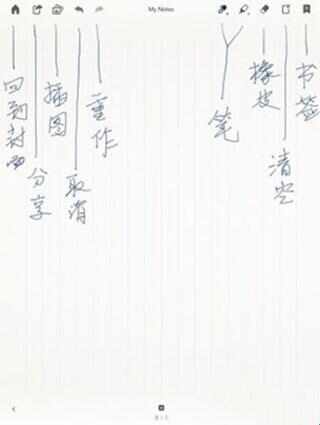 My Notes
回到封面
分享
插图
取消
重作
笔
橡皮
清空
书签